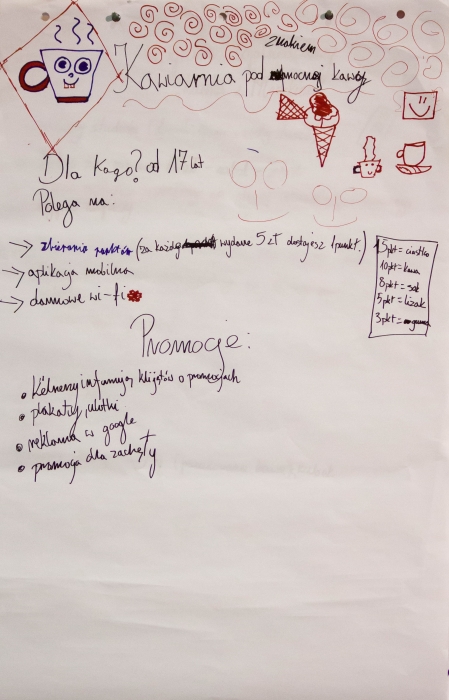 znakiem
Kawiarnia pod mocnej kawy
Dla kogo? od 17 lat
Polega na:
→ zbieranie punktów (za każde wydane 5 zł dostajesz 1 punkt.)
→ aplikacja mobilna
→ darmowe wi-fi
15pkt = ciastko
10pkt = kawa
8pkt = sok
5pkt = lizak
3pkt = guma
Promocje:
• Kelnerzy informują klijętów o promocjach
• plakaty, ulotki
• reklama w google
• promocja dla zachęty